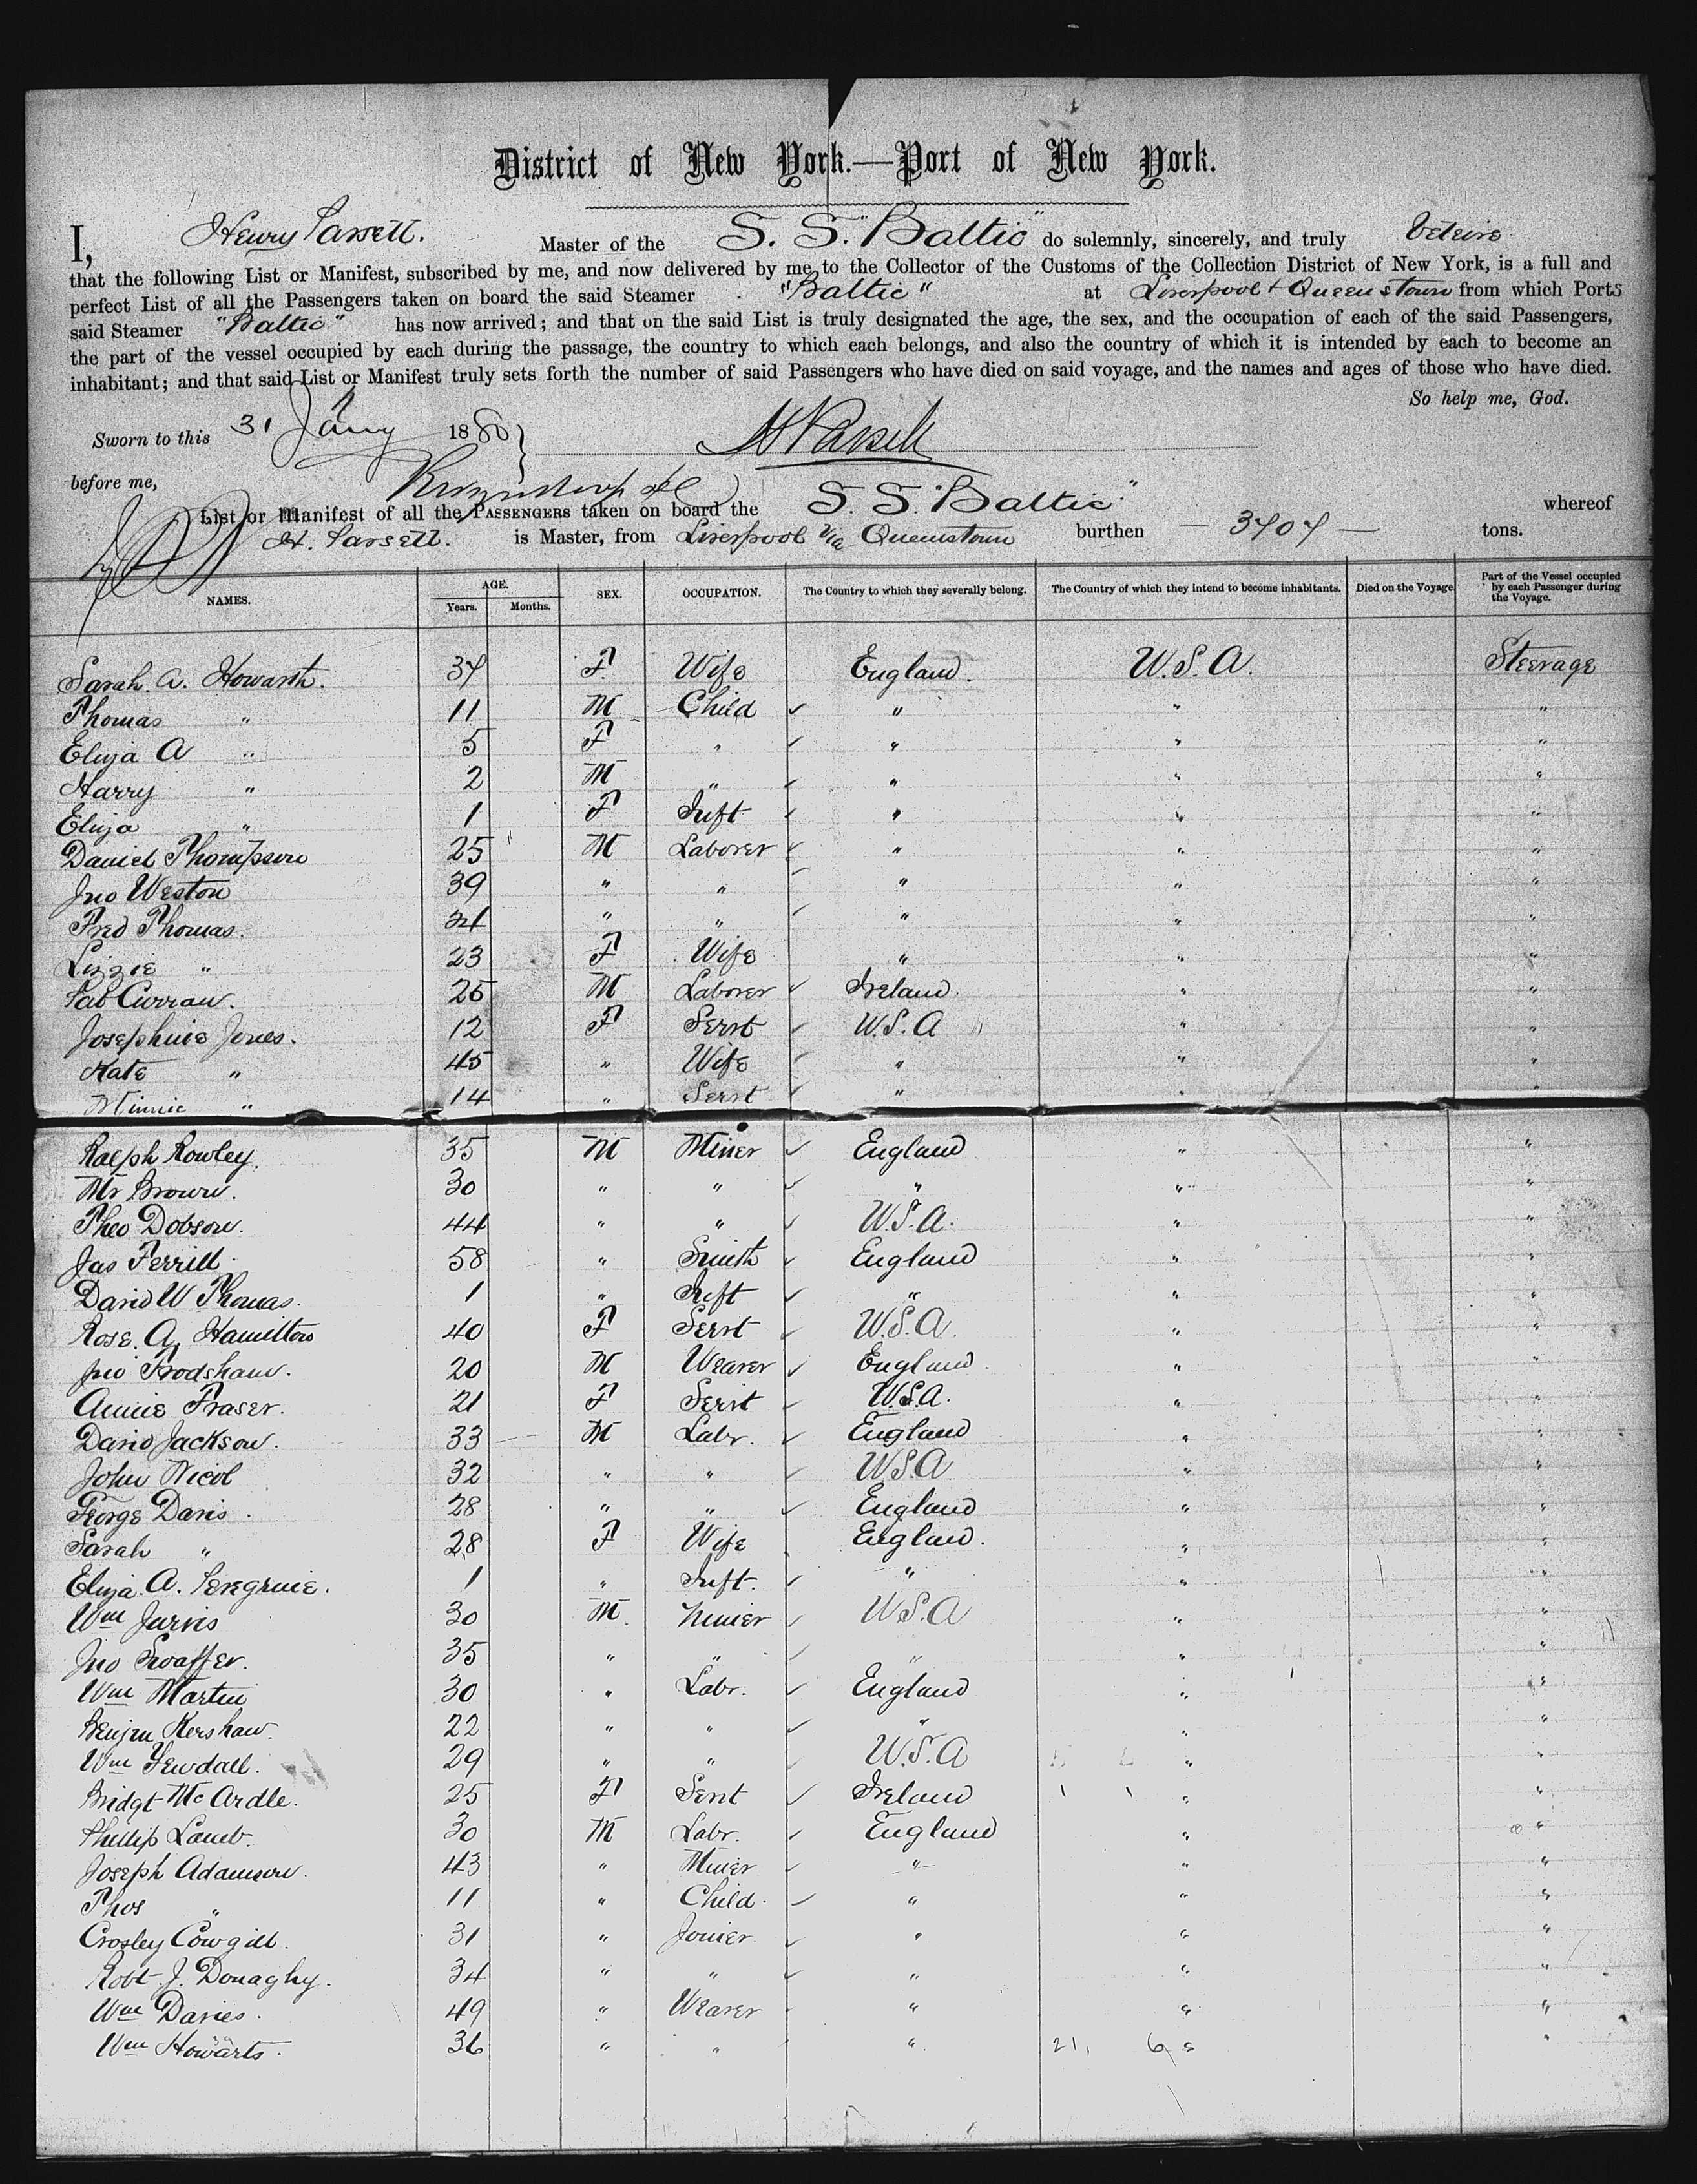 District of New York.—Port of New York.
I, Henry Parsell. Master of the S. S. "Baltic" do solemnly, sincerely, and truly
that the following List or Manifest, subscribed by me, and now delivered by me to the Collector of the Customs of the Collection District of New York, is a full and
perfect List of all the Passengers taken on board the said Steamer "Baltic" at Liverpool + Queenstown from which Ports
said Steamer "Baltic" has now arrived; and that on the said List is truly designated the age, the sex, and the occupation of each of the said Passengers,
the part of the vessel occupied by each during the passage, the country to which each belongs, and also the country of which it is intended by each to become an
inhabitant; and that said List or Manifest truly sets forth the number of said Passengers who have died on said voyage, and the names and ages of those who have died.
So help me, God.
Sworn to this 31 Jany 1880 } H Parsell
before me,
List or Manifest of all the PASSENGERS taken on board the S. S. "Baltic" whereof
H. Parsell. is Master, from Liverpool via Queenstown burthen — 3707 — tons.
NAMES. AGE. Years. Months. SEX. OCCUPATION. The Country to which they severally belong. The Country of which they intend to become inhabitants. Died on the Voyage Part of the Vessel occupied by each Passenger during the Voyage.
Sarah. A. Howarth. 37 F. Wife England. U.S.A. Steerage
Thomas " 11 M Child " " "
Eliza A " 5 F " " " "
Harry " 2 M " " " "
Eliza " 1 F Inft " " "
Daniel Thompson 25 M Laborer " " "
Jno Weston 39 " " " " "
Fred Thomas. 24 " " " " "
Lizzie " 23 F Wife " " "
Pat Curran. 25 M Laborer Ireland. " "
Josephine Jones. 12 F Servt U.S.A " "
Kate " 45 " Wife " " "
Minnie " 14 " Servt " " "
Ralph Rowley. 35 M Miner England " "
Mr Brown. 30 " " " " "
Theo Dobson. 44 " " U.S.A. " "
Jas Ferrill. 58 " Smith England " "
David W Thomas. 1 " Inft " " "
Rose. A. Hamilton 40 F Servt U.S.A. " "
Jno Frodsham. 20 M Weaver England. " "
Annie Fraser. 21 F Servt U.S.A. " "
David Jackson. 33 M Labr. England " "
John Nicol 32 " " U.S.A " "
George Davis. 28 " " England " "
Sarah " 28 F Wife England. " "
Eliza. A. Peregrine. 1 " Inft. " " "
Wm Jarvis 30 M. Miner U.S.A " "
Jno Swaffer. 35 " " " " "
Wm Martin 30 " Labr. England " "
Benjm Kershaw. 22 " " " " "
Wm Yewdall. 29 " " U.S.A " "
Bridgt McArdle. 25 F Servt Ireland " "
Phillip Lamb. 30 M Labr. England " "
Joseph Adamson. 43 " Miner " " "
Thos " 11 " Child. " " "
Crosley Cowgill. 31 " Joiner " " "
Robt. J. Donaghy. 34 " " " " "
Wm Davies. 49 " Weaver " " "
Wm Howarts. 36 " " " 21, 6 " "